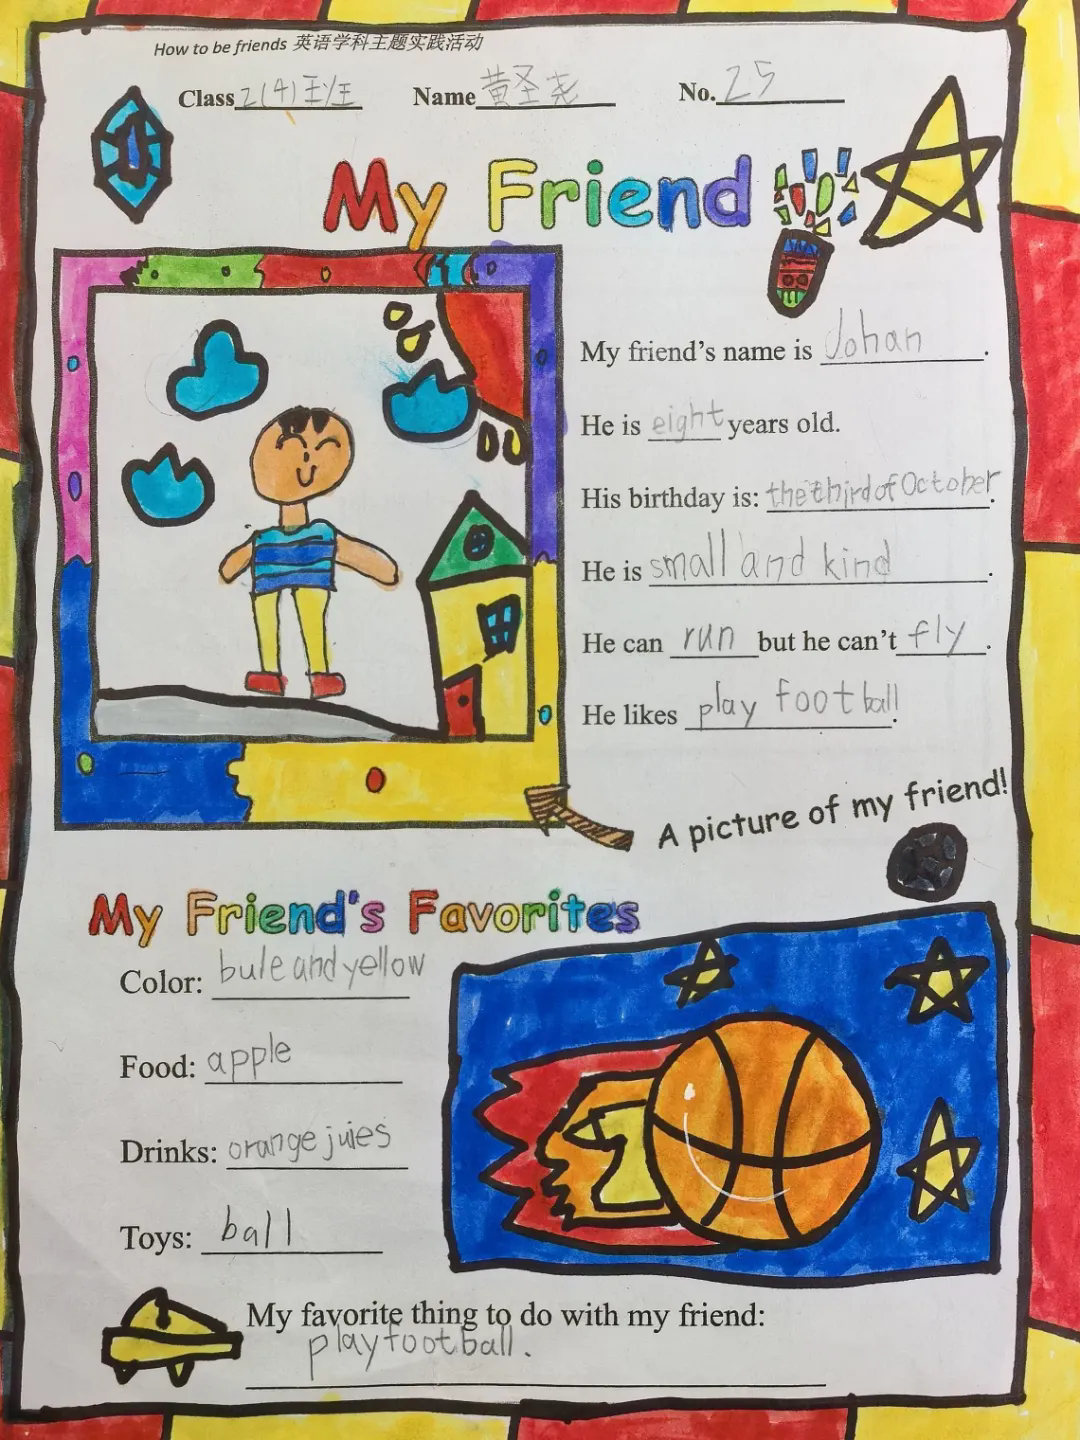 How to be friends 英语学科主题实践活动
Class 2(4)班 Name 黄圣尧 No. 25
My Friend
My friend's name is Johan.
He is eight years old.
His birthday is: the third of October.
He is small and kind.
He can run but he can't fly.
He likes play football.
A picture of my friend!
My Friend's Favorites
Color: bule and yellow
Food: apple
Drinks: orange juies
Toys: ball
My favorite thing to do with my friend:
play football.